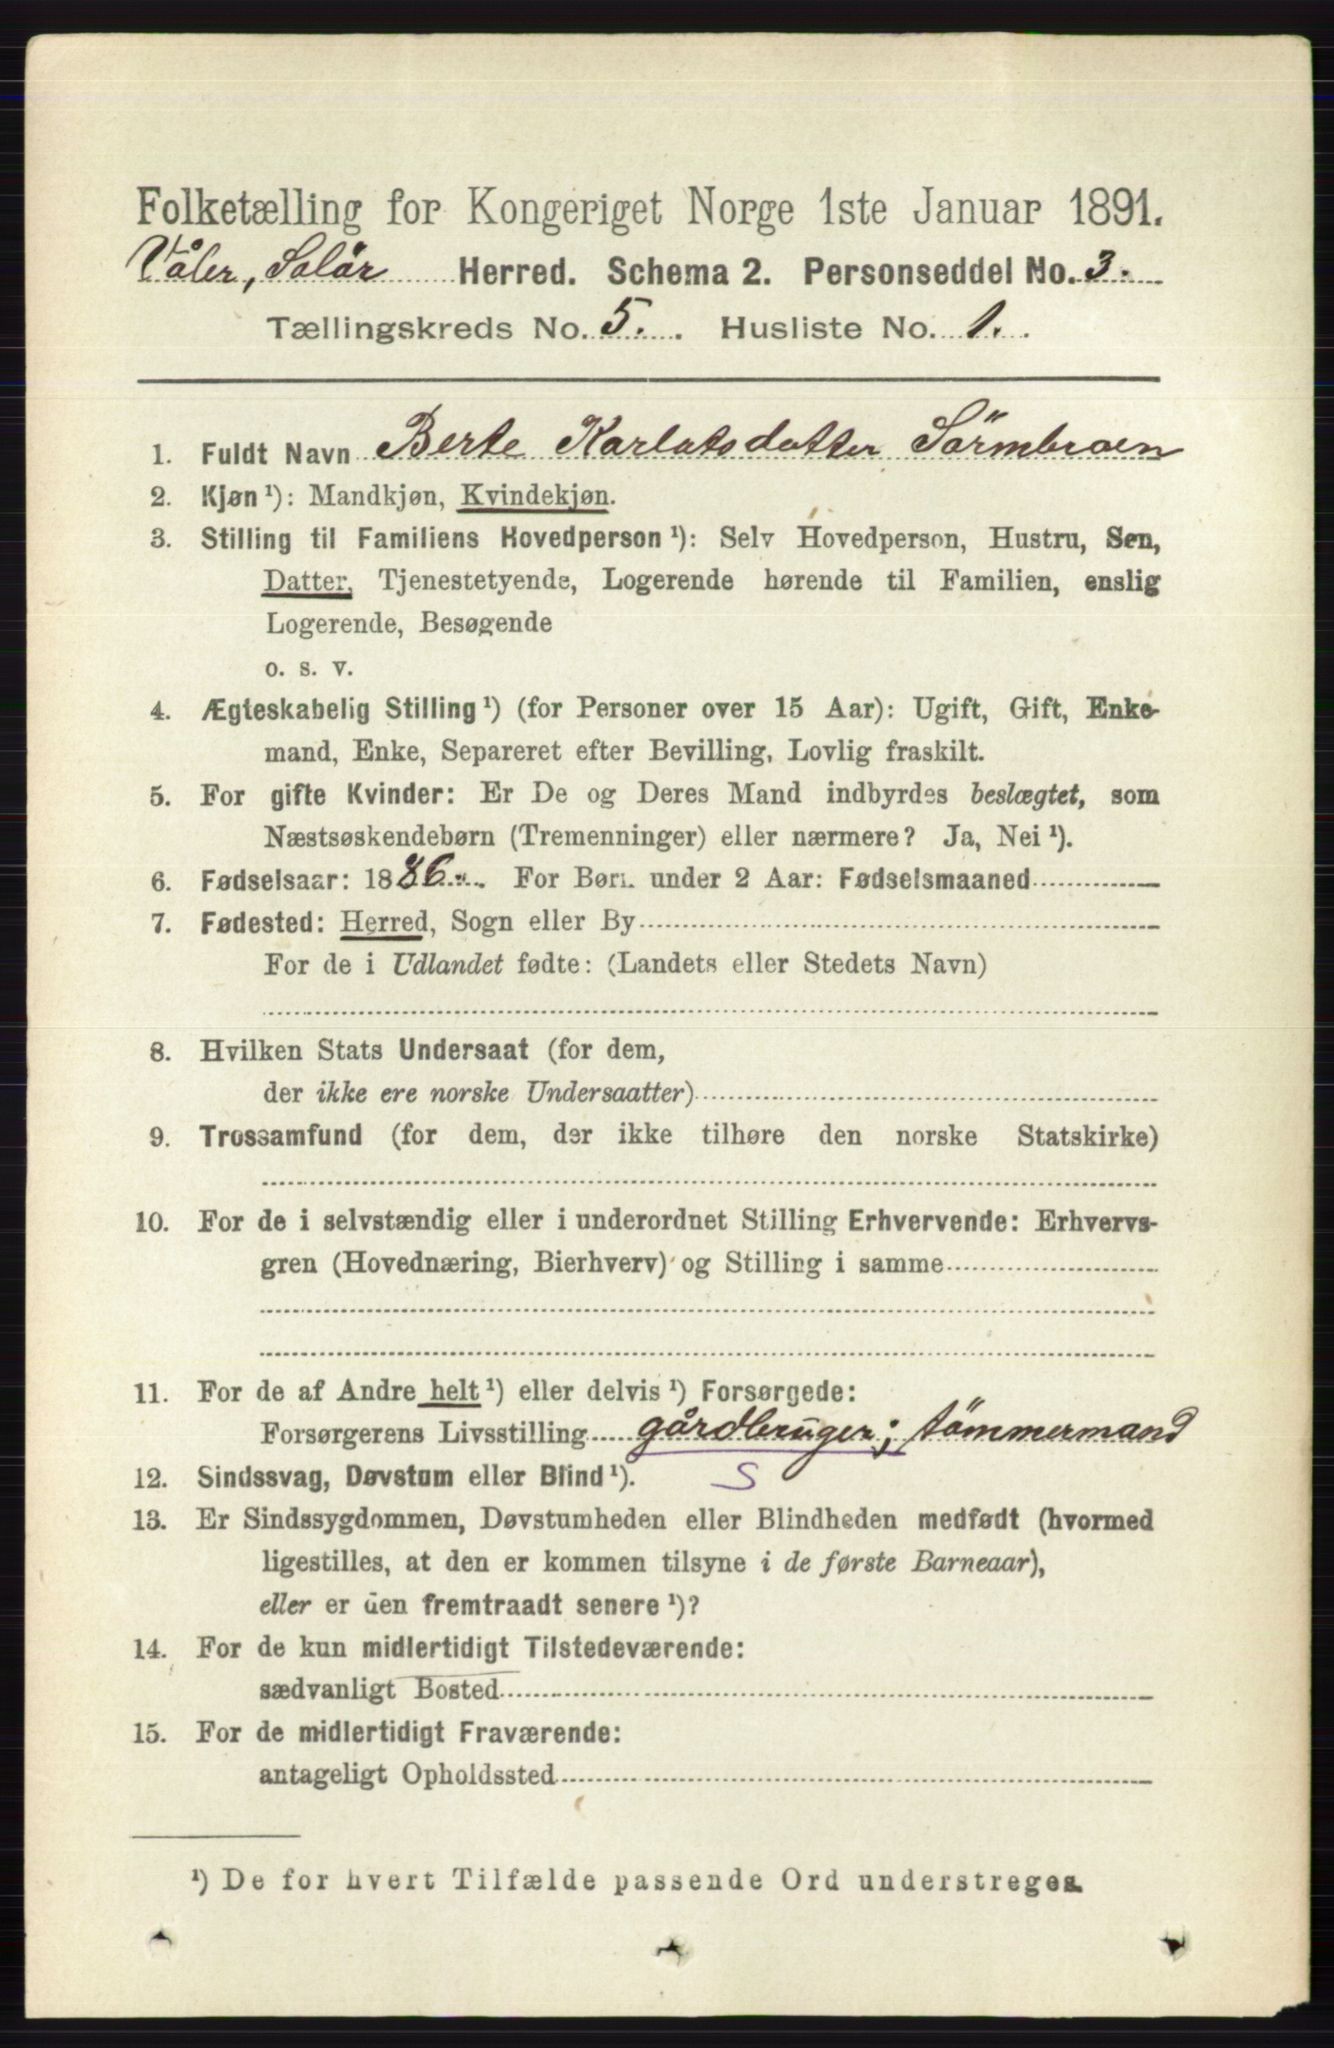 Folketælling for Kongeriget Norge 1ste Januar 1891.
Våler, Solör Herred. Schema 2. Personseddel No. 3.
Tællingskreds No. 5. Husliste No. 1.
1. Fuldt Navn Berte Karlatsdatter Sörmbroen
2. Kjøn ¹): Mandkjøn, Kvindekjøn.
3. Stilling til Familiens Hovedperson ¹): Selv Hovedperson, Hustru, Søn,
Datter, Tjenestetyende, Logerende hørende til Familien, enslig
Logerende, Besøgende
o. s. v.
4. Ægteskabelig Stilling ¹) (for Personer over 15 Aar): Ugift, Gift, Enke-
mand, Enke, Separeret efter Bevilling, Lovlig fraskilt.
5. For gifte Kvinder: Er De og Deres Mand indbyrdes beslægtet, som
Næstsøskendebørn (Tremenninger) eller nærmere? Ja, Nei ¹).
6. Fødselsaar: 1886. For Børn under 2 Aar: Fødselsmaaned
7. Fødested: Herred, Sogn eller By
For de i Udlandet fødte: (Landets eller Stedets Navn)
8. Hvilken Stats Undersaat (for dem,
der ikke ere norske Undersaatter)
9. Trossamfund (for dem, der ikke tilhøre den norske Statskirke)
10. For de i selvstændig eller i underordnet Stilling Erhvervende: Erhvervs-
gren (Hovednæring, Bierhverv) og Stilling i samme
11. For de af Andre helt ¹) eller delvis ¹) Forsørgede:
Forsørgerens Livsstilling gårdbruger; tömmermand
12. Sindssvag, Døvstum eller Blind ¹). S
13. Er Sindssygdommen, Døvstumheden eller Blindheden medfødt (hvormed
ligestilles, at den er kommen tilsyne i de første Barneaar),
eller er den fremtraadt senere ¹)?
14. For de kun midlertidigt Tilstedeværende:
sædvanligt Bosted
15. For de midlertidigt Fraværende:
antageligt Opholdssted
¹) De for hvert Tilfælde passende Ord understreges.